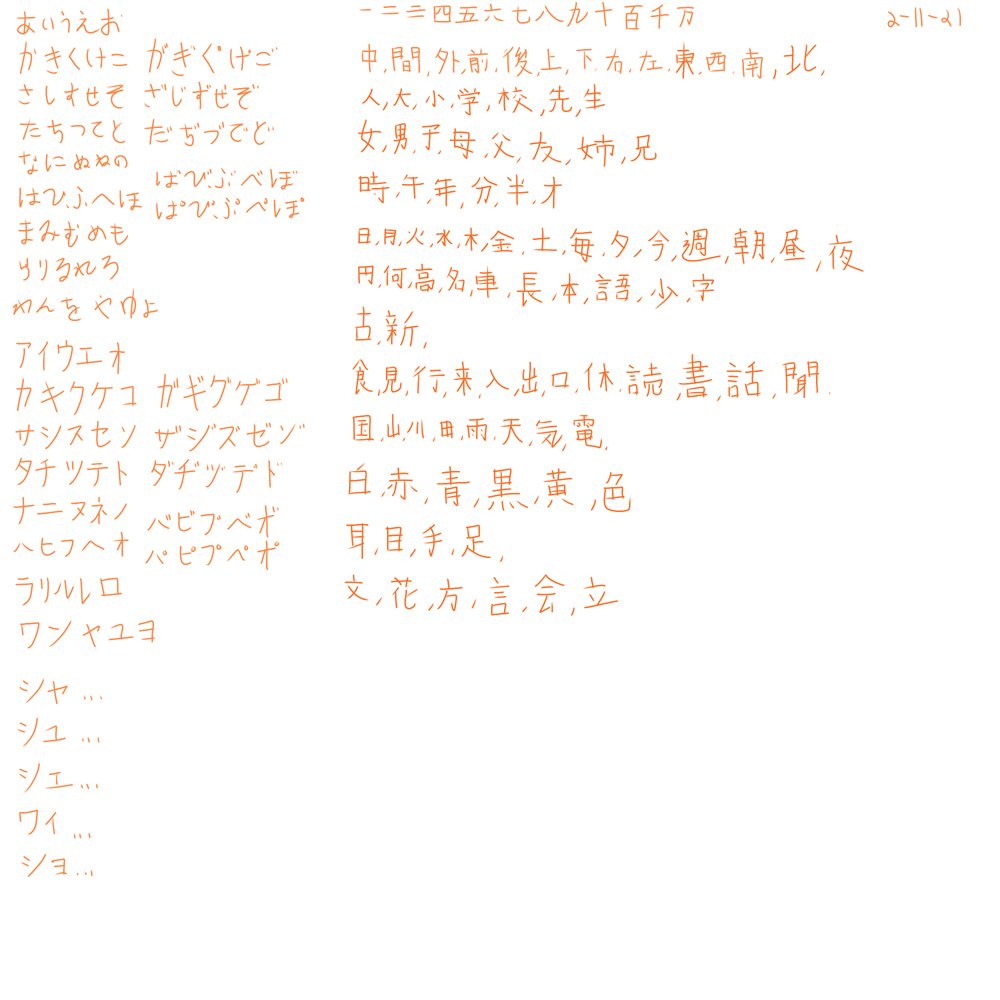 あいうえお
かきくけこ がぎぐげご
さしすせそ ざじずぜぞ
たちつてと だぢづでど
なにぬねの
はひふへほ ばびぶべぼ
ぱぴぷぺぽ
まみむめも
りるれろ
わんを やゆよ
アイウエオ
カキクケコ ガギグゲゴ
サシスセソ ザジズゼゾ
タチツテト ダヂヅデド
ナニヌネノ
バビブベボ
ハヒフヘホ
パピプペポ
ラリルレロ
ワンヤユヨ
シャ...
シュ...
シェ...
ワィ...
ショ...
一二三四五六七八九十百千万
中,間,外,前,後,上,下,右,左,東,西,南,北,
人,大,小,学,校,先,生
女,男,子,母,父,友,姉,兄
時,午,年,分,半,才
日,月,火,水,木,金,土,毎,夕,今,週,朝,昼,夜
円,何,高,名,車,長,本,語,少,字
古,新,
食,見,行,来,入,出,口,休,読,書,話,聞.
国,山,川,田,雨,天,気,電,
白,赤,青,黒,黄,色
耳,目,手,足,
文,花,方,言,会,立
2-11-21